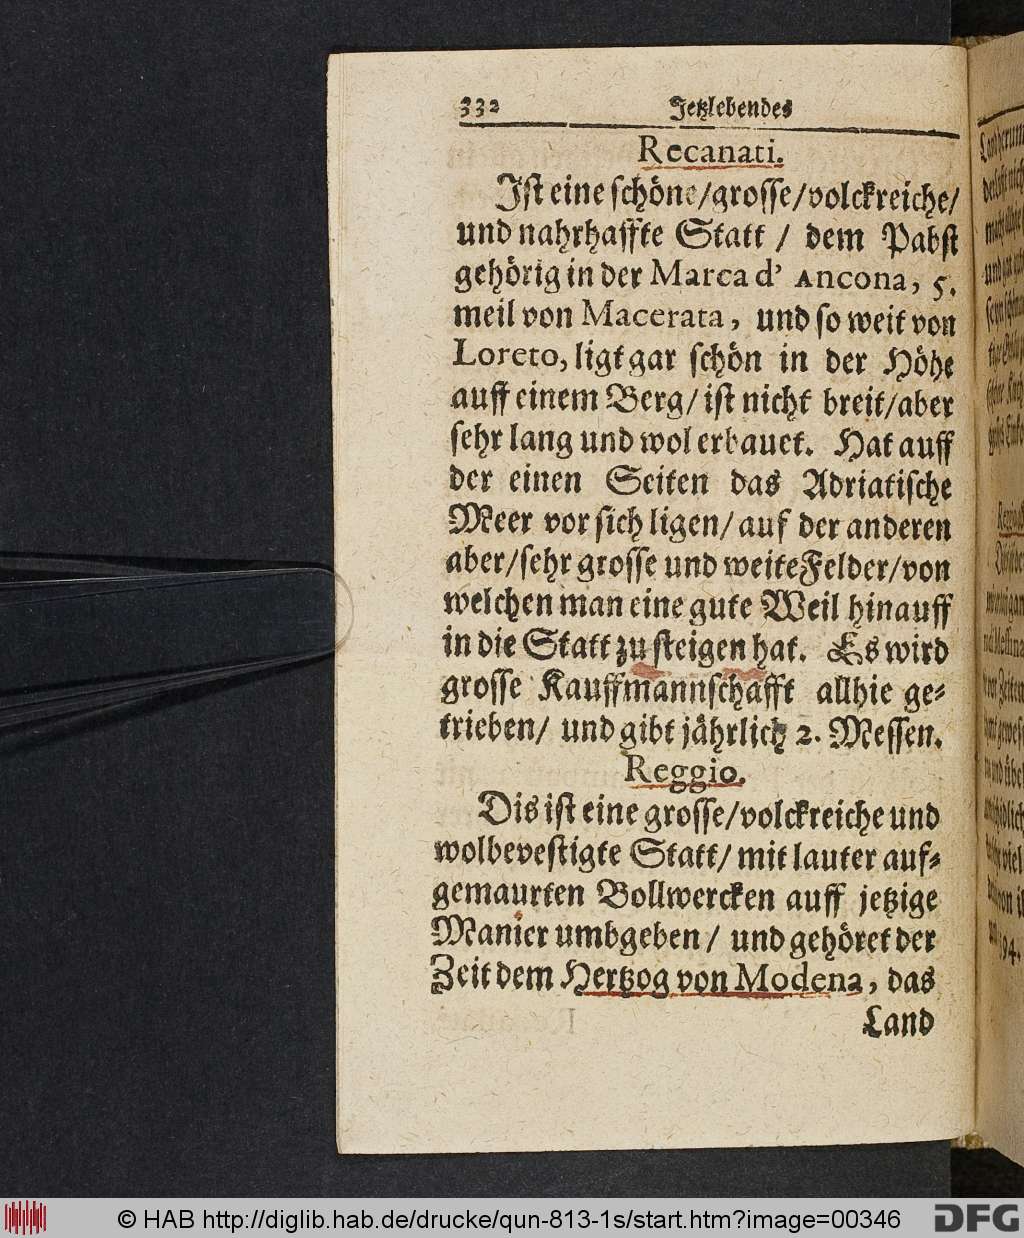 332 Jetzlebendes
Recanati.
Ist eine schöne/grosse/volckreiche/
und nahrhaffte Statt / dem Pabst
gehörig in der Marca d' Ancona, 5.
meil von Macerata, und so weit von
Loreto, ligt gar schön in der Höhe
auff einem Berg/ ist nicht breit/aber
sehr lang und wol erbauet. Hat auff
der einen Seiten das Adriatische
Meer vor sich ligen/ auf der anderen
aber/sehr grosse und weite Felder/von
welchen man eine gute Weil hinauff
in die Statt zu steigen hat. Es wird
grosse Kauffmannschafft allhie ge-
trieben/ und gibt jährlich 2. Messen.
Reggio.
Dis ist eine grosse/volckreiche und
wolbevestigte Statt/ mit lauter auf-
gemaurten Bollwercken auff jetzige
Manier umbgeben / und gehöret der
Zeit dem Hertzog von Modena, das
Land
© HAB http://diglib.hab.de/drucke/qun-813-1s/start.htm?image=00346
DFG